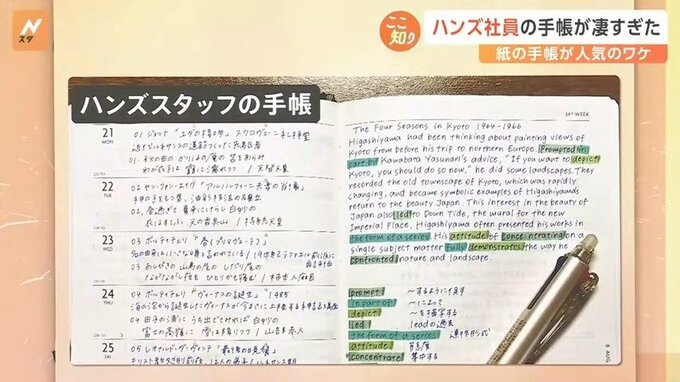 Nスタ
ここ知り
ハンズ社員の手帳が凄すぎた
紙の手帳が人気のワケ
ハンズスタッフの手帳
21
MON
01 ジョット「ユダの接吻」スクロヴェーニ礼拝堂
01 秋の田の かりほの庵の 苫をあらみ
わが衣手は 露にぬれつつ / 天智天皇
22
TUE
02 ヤン・ファン・エイク「アルノルフィーニ夫妻の肖像」
02 春過ぎて 夏来にけらし 白妙の
衣ほすてふ 天の香具山 / 持統天皇
23
WED
03 ボッティチェリ「春(プリマヴェーラ)」
03 あしびきの 山鳥の尾の しだり尾の
ながながし夜を ひとりかも寝む / 柿本人麻呂
24
THU
04 ボッティチェリ「ヴィーナスの誕生」/ 1485
04 田子の浦に うち出でてみれば 白妙の
富士の高嶺に 雪は降りつつ / 山部赤人
25
FRI
05 レオナルド・ダ・ヴィンチ「最後の晩餐」
34TH WEEK
The Four Seasons in Kyoto 1964-1966
Higashiyama had been thinking about painting views of
Kyoto from before his trip to northern Europe. Prompted in
part by Kawabata Yasunari's advice, "If you want to depict
Kyoto, you should do so now," he did some landscapes. They
recorded the old townscape of Kyoto, which was rapidly
changing, and became symbolic examples of Higashiyama's
return to the beauty Japan. This interest in the beauty of
Japan also led to Down Tide, the mural for the new
Imperial Place. Higashiyama often presented his works in
the form of a series. His attitude of concentrating on a
single subject matter fully demonstrates the way he
confronted nature and landscape.
prompt ~するように促す
in part of ~によって
depict ~を描写する
led leadの過去
the form of a series 連作形式
attitude 態度
concentrate 集中する
8 AUG